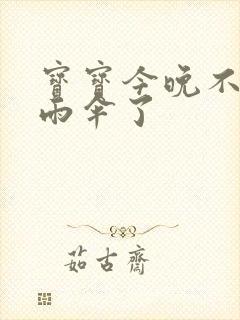 寶寶今晚不
雨伞了
茹古齋